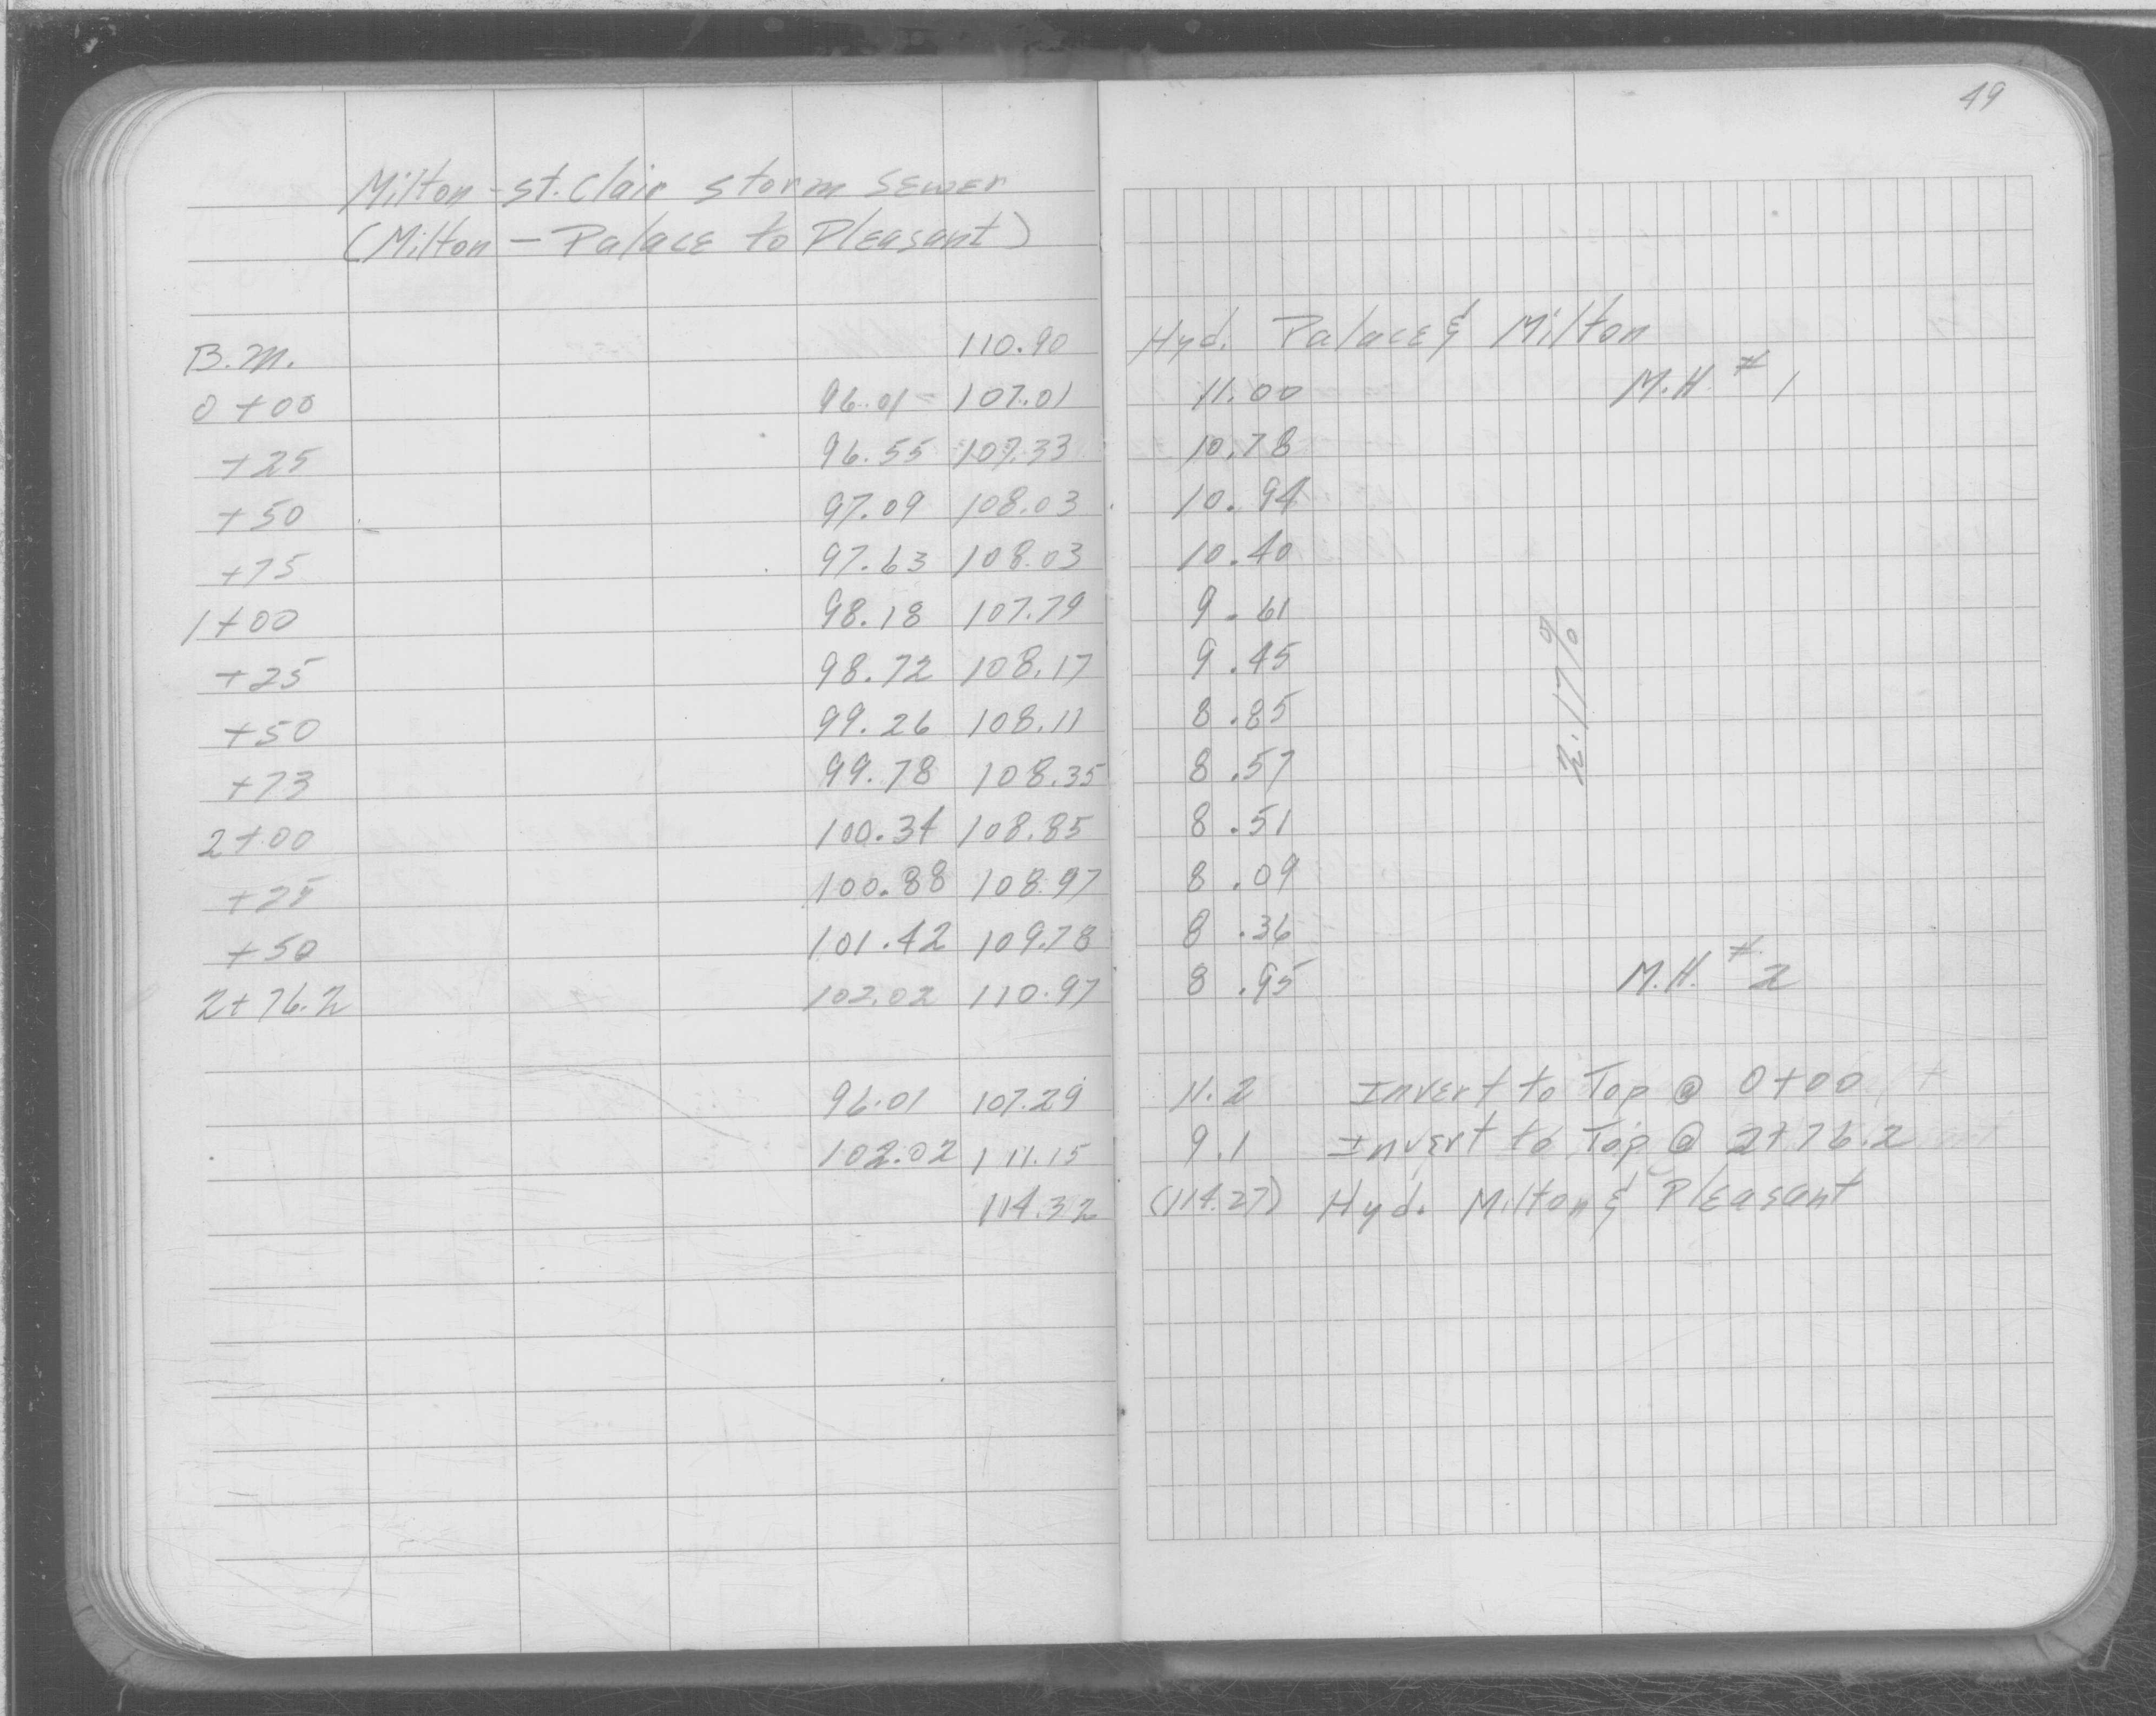 49
Milton - St. Clair Storm Sewer
(Milton - Palace to Pleasant)
B.M. 110.90 Hyd. Palace & Milton
0+00 96.01 - 107.01 11.00 M.H. # 1
+25 96.55 107.33 10.78
+50 97.09 108.03 10.94
+75 97.63 108.03 10.40
1+00 98.18 107.79 9.61
+25 98.72 108.17 9.45
+50 99.26 108.11 8.85
+73 99.78 108.35 8.57
2.17%
2+00 100.34 108.85 8.51
+25 100.88 108.97 8.09
+50 101.42 109.78 8.36
2+76.2 102.02 110.97 8.95 M.H. # 2
96.01 107.29 11.2 Invert to Top @ 0+00
102.02 111.15 9.1 Invert to Top @ 2+76.2
114.32 (114.27) Hyd. Milton & Pleasant